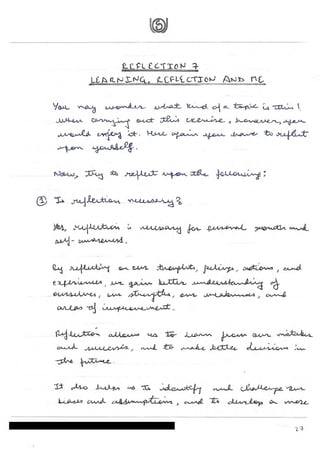 5
REFLECTION 7
LEARNING, REFLECTION AND ME
You may wonder what kind of a topic is this!
When carrying out this exercise, however, you
would enjoy it. Here again you have to reflect
upon yourself.
Now, try to reflect upon the following:
Is reflection necessary?
Yes, reflection is necessary for personal growth and
self-awareness.
By reflecting on our thoughts, feelings, actions, and
experiences, we gain better understanding of
ourselves, our strengths, our weaknesses, and
areas of improvement.
Reflection allows us to learn from our mistakes
and successes, and to make better decisions in
the future.
It also helps us to identify and challenge our
biases and assumptions, and to develop a more
27